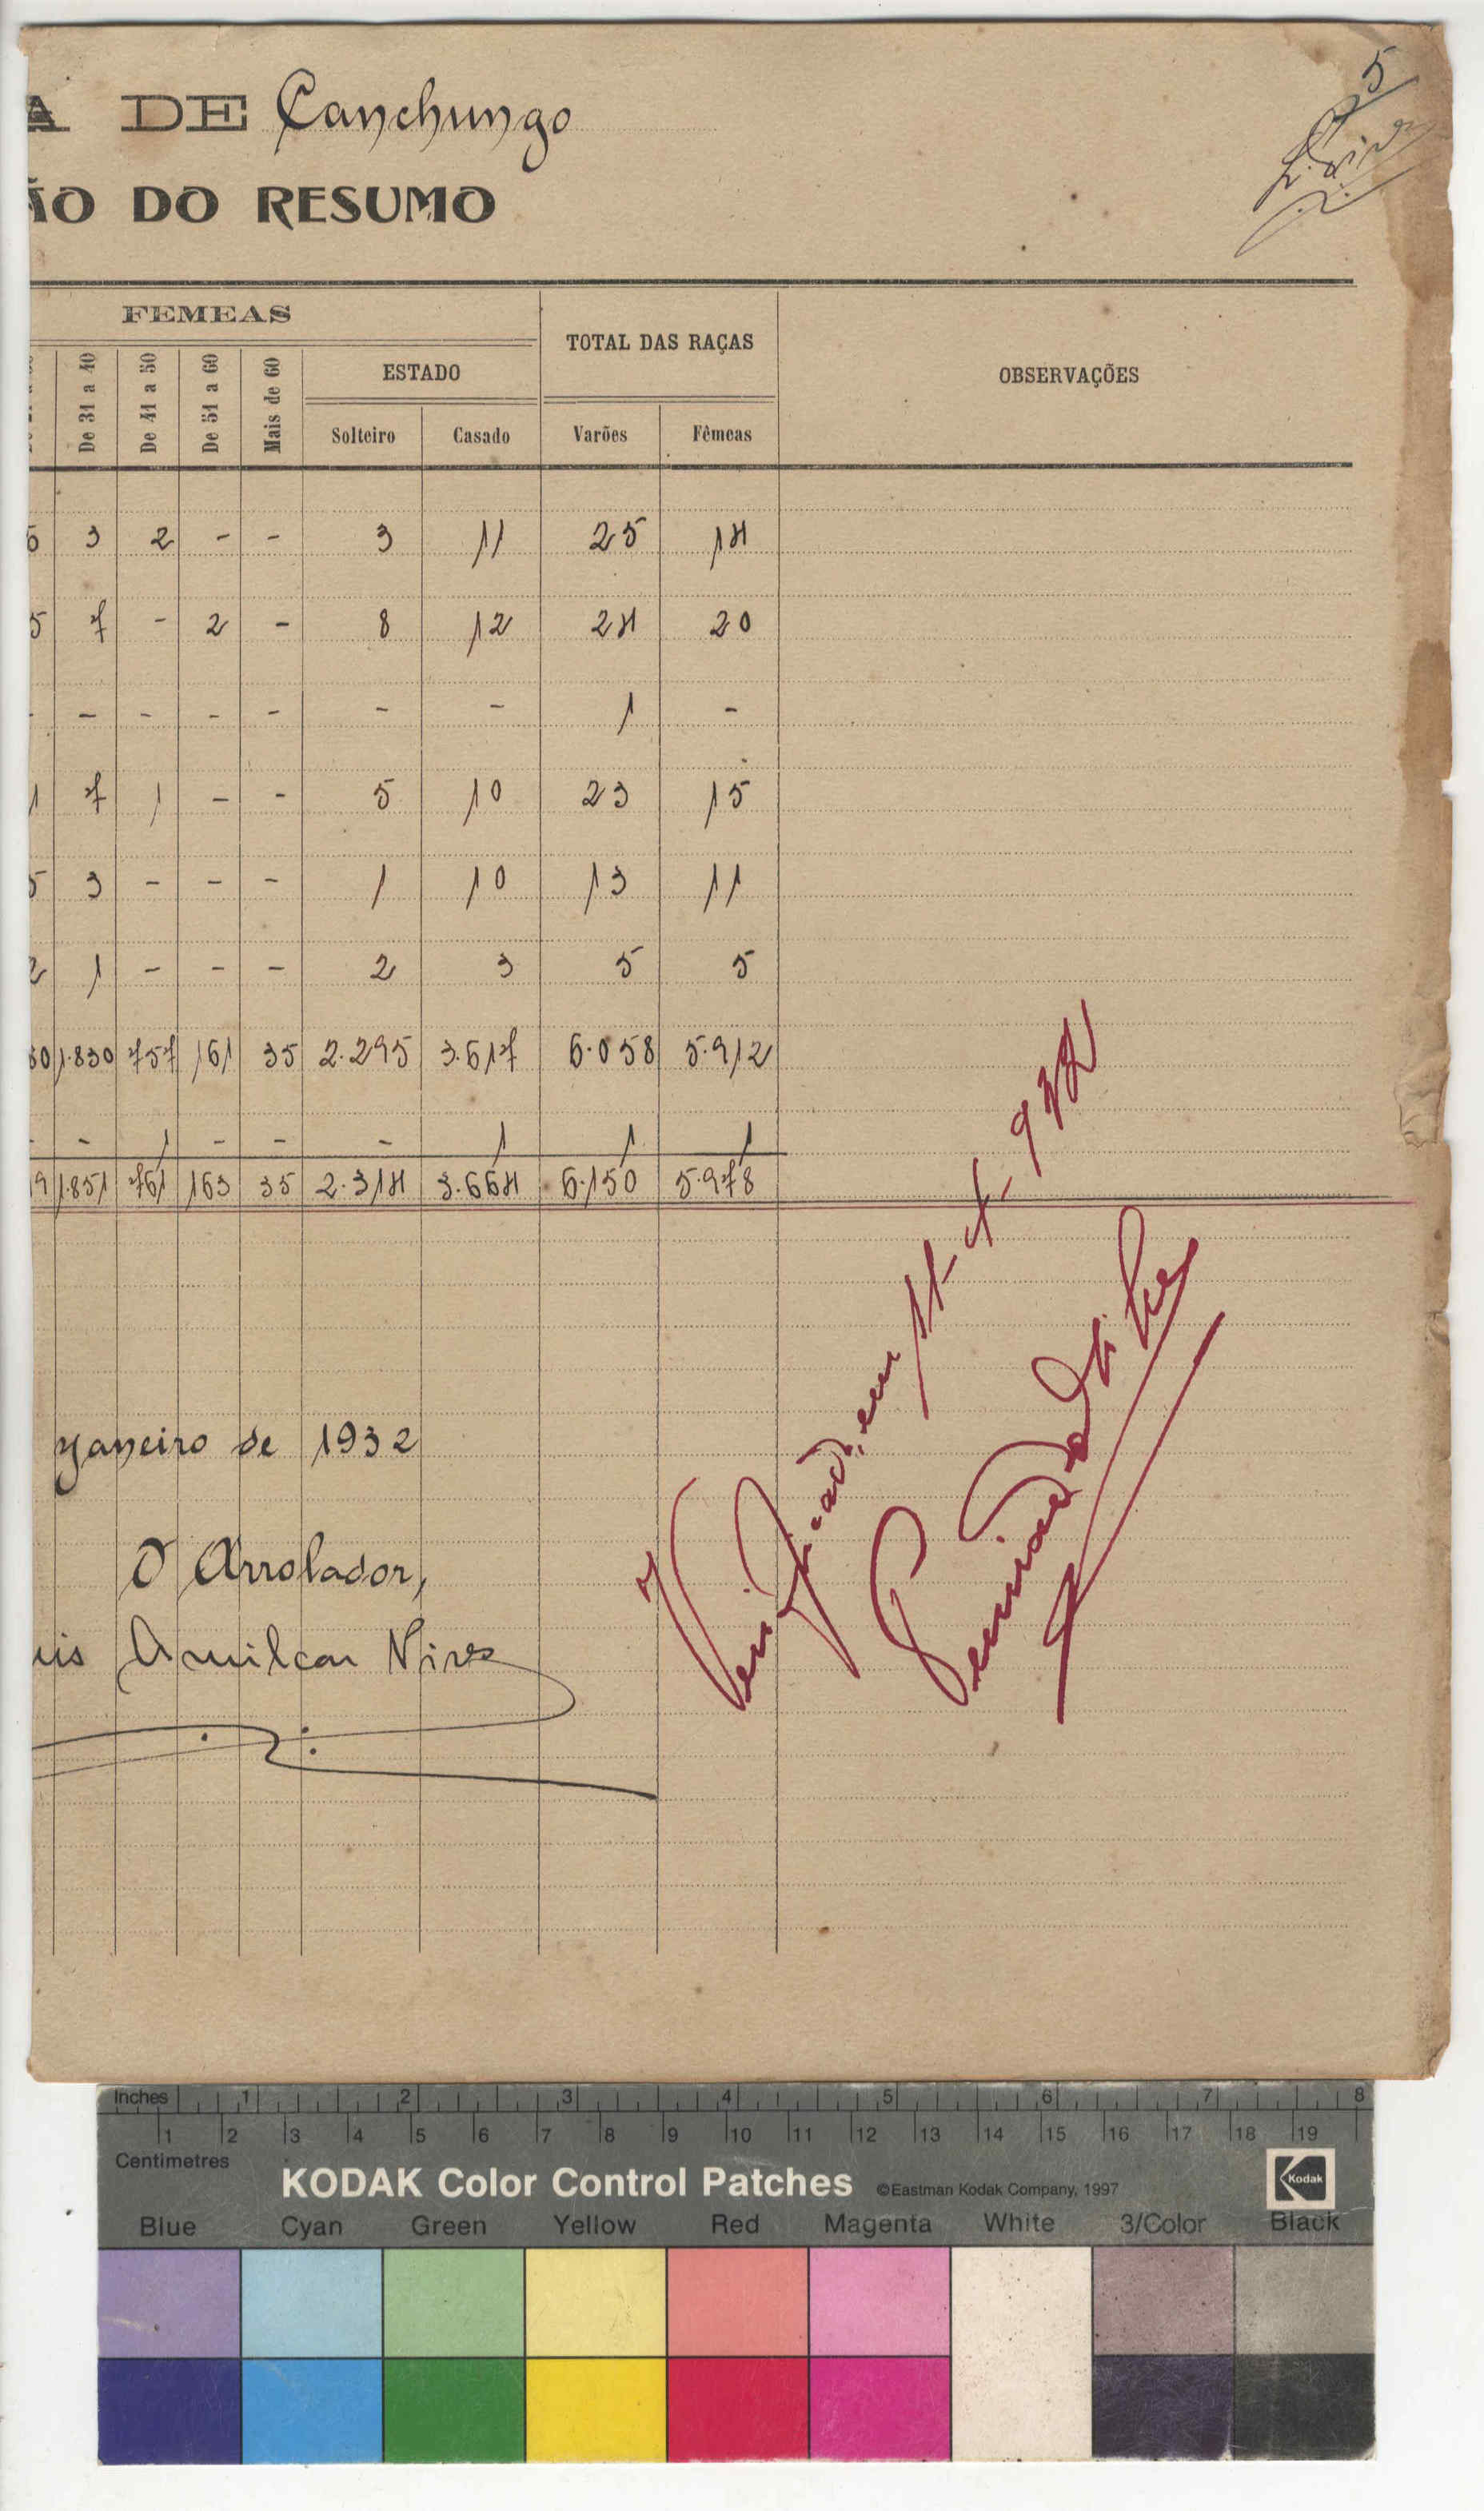 5
A DE Canchungo
ÃO DO RESUMO
FEMEAS
TOTAL DAS RAÇAS
OBSERVAÇÕES
De 31 a 40
De 41 a 50
De 51 a 60
Mais de 60
ESTADO
Solteiro Casado Varões Fêmeas
3 2 - - 3 11 25 14
5 7 - 2 - 8 12 24 20
- - - - - - - 1 -
1 7 1 - - 5 10 23 15
5 3 - - - 1 10 13 11
2 1 - - - 2 3 5 5
60 1.830 757 161 35 2.295 3.617 6.058 5.912
- - 1 - - - 1 1 1
9 1.851 761 163 35 2.314 3.664 6.150 5.978
Janeiro de 1932
O Arrolador,
uis Amilcar Nives
Verificado em
Inches 1 2 3 4 5 6 7 8
1 2 3 4 5 6 7 8 9 10 11 12 13 14 15 16 17 18 19
Centimetres
KODAK Color Control Patches ©Eastman Kodak Company, 1997 Kodak
Blue Cyan Green Yellow Red Magenta White 3/Color Black